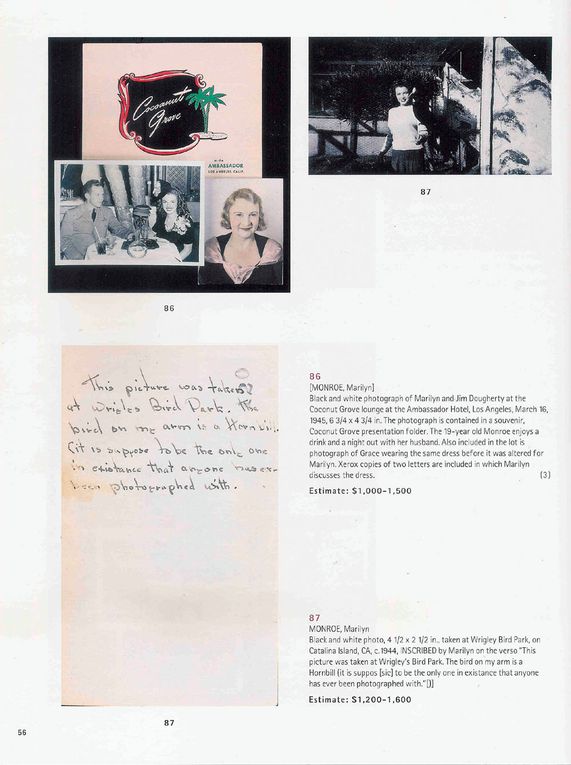 Cocoanut
Grove
at the
AMBASSADOR
LOS ANGELES, CALIF.
87
86
This picture was taken
at Wrigles Bird Park. The
bird on my arm is a Hornbill.
(it is suppose to be the only one
in existance that anyone has ev-
been photographed with.
86
[MONROE, Marilyn]
Black and white photograph of Marilyn and Jim Dougherty at the
Coconut Grove lounge at the Ambassador Hotel, Los Angeles, March 16,
1945, 6 3/4 x 4 3/4 in. The photograph is contained in a souvenir,
Coconut Grove presentation folder. The 19-year old Monroe enjoys a
drink and a night out with her husband. Also included in the lot is
photograph of Grace wearing the same dress before it was altered for
Marilyn. Xerox copies of two letters are included in which Marilyn
discusses the dress. (3)
Estimate: $1,000-1,500
87
MONROE, Marilyn
Black and white photo, 4 1/2 x 2 1/2 in., taken at Wrigley Bird Park, on
Catalina Island, CA, c.1944, INSCRIBED by Marilyn on the verso "This
picture was taken at Wrigley's Bird Park. The bird on my arm is a
Hornbill (it is suppos [sic] to be the only one in existance that anyone
has ever been photographed with."[)]
Estimate: $1,200-1,600
87
56